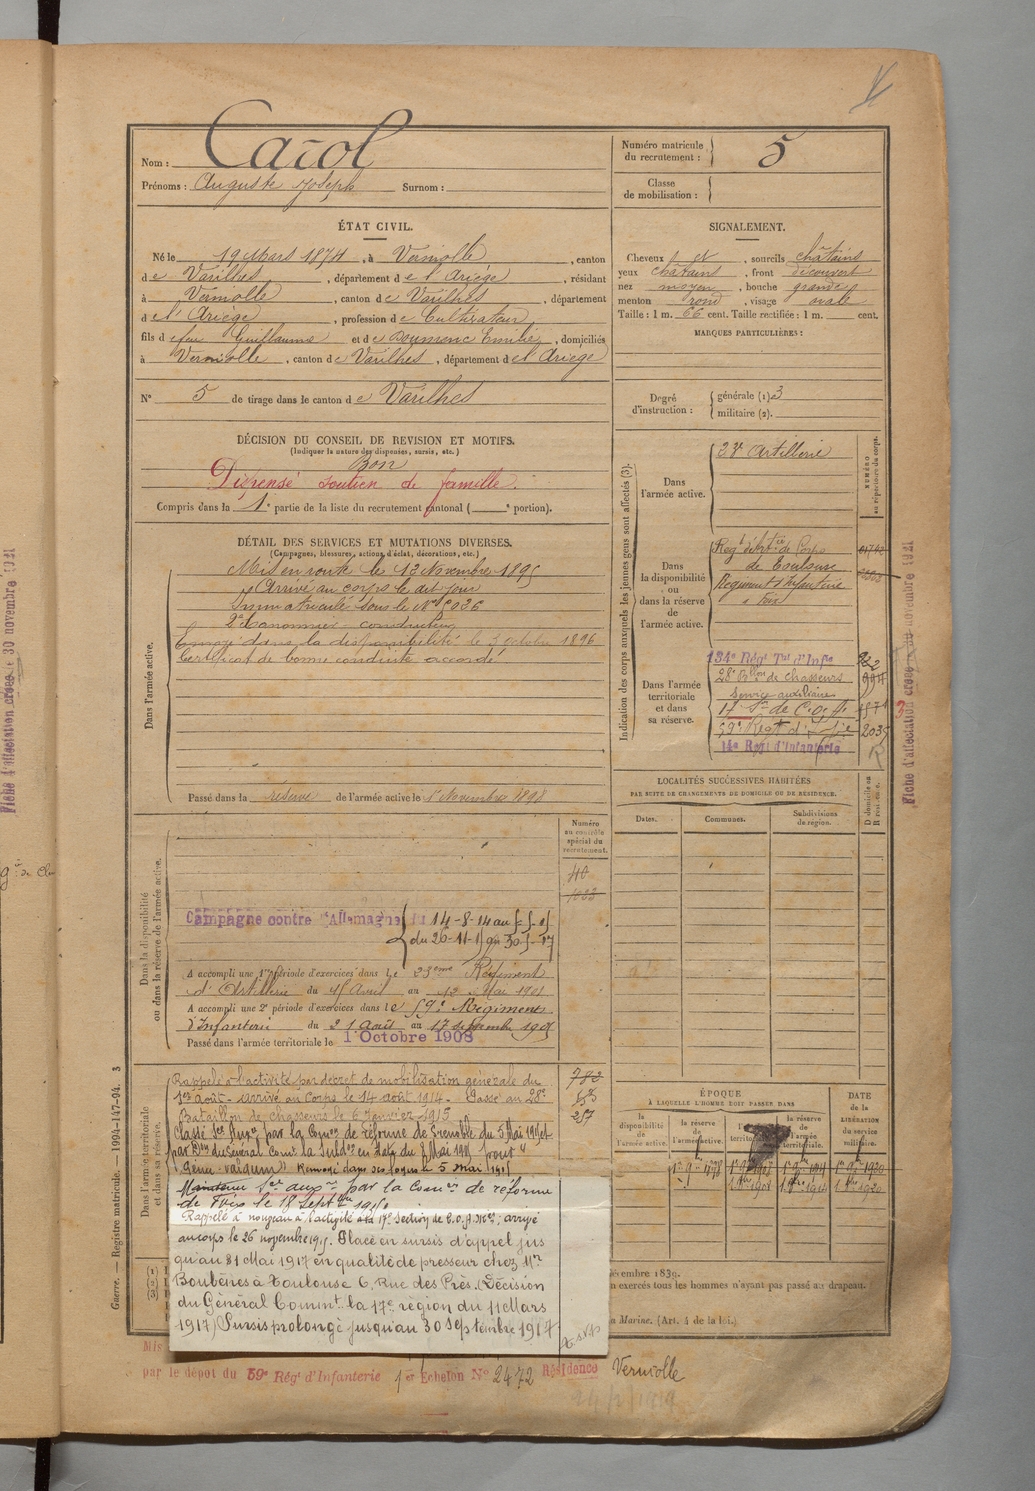 Nom : Carol
Prénoms : Auguste Joseph Surnom :
Numéro matricule du recrutement : 5
Classe de mobilisation :
ÉTAT CIVIL.
Né le 19 Mars 1874, à Verniolle, canton
de Varilhes, département de l'Ariège, résidant
à Verniolle, canton de Varilhes, département
de l'Ariège, profession de Cultivateur
fils de feu Guillaume et de Doumenc Emilie, domiciliés
à Verniolle, canton de Varilhes, département de l'Ariège
N° 5 de tirage dans le canton de Varilhes
SIGNALEMENT.
Cheveux et, sourcils châtains
yeux châtains, front découvert
nez moyen, bouche grande
menton rond, visage ovale
Taille : 1 m. 66 cent. Taille rectifiée : 1 m. cent.
MARQUES PARTICULIÈRES :
Degré d'instruction : générale (1) 3
militaire (2).
DÉCISION DU CONSEIL DE REVISION ET MOTIFS.
(Indiquer la nature des dispenses, sursis, etc.)
Bon
Dispensé soutien de famille.
Compris dans la 1e partie de la liste du recrutement cantonal ( e portion).
DÉTAIL DES SERVICES ET MUTATIONS DIVERSES.
(Campagnes, blessures, actions d'éclat, décorations, etc.)
Dans l'armée active.
Mis en route le 13 Novembre 1895
Arrivé au corps le dit jour
Immatriculé sous le N°
2e Canonnier conducteur
Envoyé dans la disponibilité le 3 octobre 1896
Certificat de bonne conduite accordé
Passé dans la réserve de l'armée active le 1 Novembre 1898
Indication des corps auxquels les jeunes gens sont affectés (3).
NUMÉRO au répertoire du corps.
Dans l'armée active.
23e Artillerie
Dans la disponibilité ou dans la réserve de l'armée active.
Regt d'Artie de Corps
de Toulouse
Régiment d'Infanterie
à Foix
Dans l'armée territoriale et dans sa réserve.
134e Régt Tal d'Infie
28e Bllon de chasseurs
Service auxiliaire
17 Son de C.O.A.
59e Regt d'Infie
14e Regt d'Infanterie
2035
LOCALITÉS SUCCESSIVES HABITÉES
PAR SUITE DE CHANGEMENTS DE DOMICILE OU DE RÉSIDENCE.
Dates. Communes. Subdivisions de région. D domicile ou R résidence.
Dans la disponibilité ou dans la réserve de l'armée active.
Numéro au contrôle spécial du recrutement.
40
Campagne contre l'Allemagne du 14-8-14 au
A accompli une 1re période d'exercices dans le 23eme Régiment
d'Artillerie du 15 Avril au 12 Mai 1901
A accompli une 2e période d'exercices dans le 59e Régiment
d'Infanterie du 21 Août au 17 septembre 1905
Passé dans l'armée territoriale le 1 Octobre 1908
Dans l'armée territoriale et dans sa réserve.
Rappelé à l'activité par décret de mobilisation générale du
1er août - arrivé au Corps le 14 août 1914 - Passé au 28e
Bataillon de chasseurs le 6 Janvier 1915
Classé Ser Auxre par la Comon de réforme de Grenoble du 5 Mai 1915 et
Renvoyé dans ses foyers le 5 mai 1915
Maintenu Ser auxre par la Comon de réforme
de Foix le 18 Septbre 1915
Rappelé à nouveau à l'activité à la 17e Section de C.O.A. ; arrivé
au corps le 26 novembre 1915. Placé en sursis d'appel jus
qu'au 31 Mai 1917 en qualité de presseur chez Mr
Boubénes à Toulouse 6, Rue des Près. (Décision
du Général Commt la 17e région du 11 Mars
1917) Sursis prolongé jusqu'au 30 septembre 1917
ÉPOQUE
À LAQUELLE L'HOMME DOIT PASSER DANS
la disponibilité de l'armée active. la réserve de l'armée active. l'armée territoriale. la réserve de l'armée territoriale.
DATE de la LIBÉRATION du service militaire.
par le dépôt du 59e Régt d'Infanterie 1er Echelon N° 2472 Résidence Verniolle
Guerre. — Registre matricule. — 1994-147-94. 3
exercés tous les hommes n'ayant pas passé au drapeau.
Marine. (Art. 4 de la loi.)
Fiche d'affectation créée le 30 novembre 1921